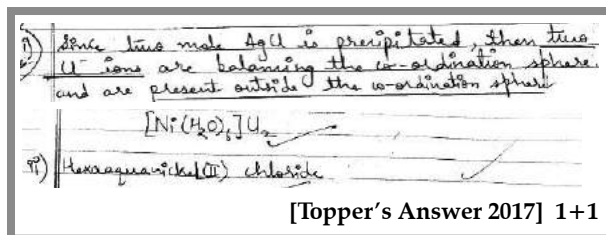 i) Since two mole AgCl is precipitated, then two
Cl⁻ ions are balancing the co-ordination sphere
and are present outside the co-ordination sphere
[Ni(H₂O)₆]Cl₂
ii) Hexaaquanickel(II) chloride
[Topper's Answer 2017] 1+1